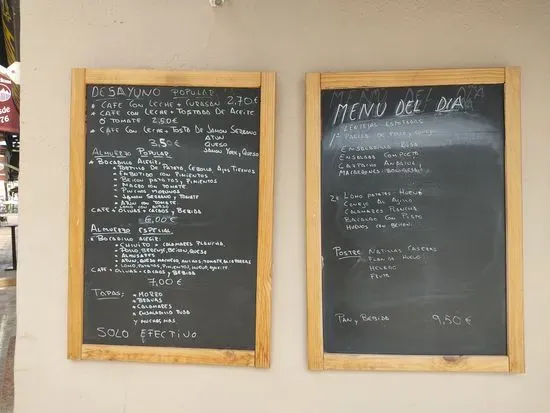 DESAYUNO POPULAR
* CAFE CON LECHE + CURASAN 2,70€
* CAFE CON LECHE + TOSTADA DE ACEITE
O TOMATE 2,50€
* CAFE CON LECHE + TOSTA DE JAMON SERRANO
ATUN
QUESO
JAMON YORK, QUESO
3,50€
ALMUERZO POPULAR
* BOCADILLO ALEGIR:
* TORTILLA DE PATATA CEBOLLA AJOS TIERNOS
* EMBUTIDO CON PIMIENTOS
* BEICON PATATAS, PIMIENTOS
* MAGRO CON TOMATE
* PINCHOS MORUNOS
* JAMON SERRANO Y TOMATE
* ATUN CON TOMATE
* LOMO CON
CAFE + OLIVAS + CACAOS Y BEBIDA
6,00€
ALMUERZO ESPECIAL
* BOCADILLO ALEGIR:
* CHIVITO * CALAMARES PLANCHA
* POLLO, BEICON, QUESO
* ALMUSAFES
* ATUN, QUESO TOMATE
* LOMO, PATATAS, PIMIENTOS
CAFE + OLIVAS + CACAOS Y BEBIDA
7,00€
TAPAS: * MORRO
* BRAVAS
* CALAMARES
* ENSALADILLA RUSA
Y MUCHAS MAS
SOLO EFECTIVO
MENU DEL DIA
LENTEJAS
1º PAELLA DE POLLO
ENSALADILLA RUSA
ENSALADA COMPLETA
GASPACHO ANDALUZ
MACARRONES BOLOÑESA
2º LOMO PATATAS HUEVO
CONEJO AL AJILLO
CALAMARES PLANCHA
BACALAO CON PISTO
HUEVOS CON BEICON
POSTRE NATILLAS CASERAS
FLAN DE HUEVO
HELADO
FRUTA
PAN Y BEBIDA 9,50€